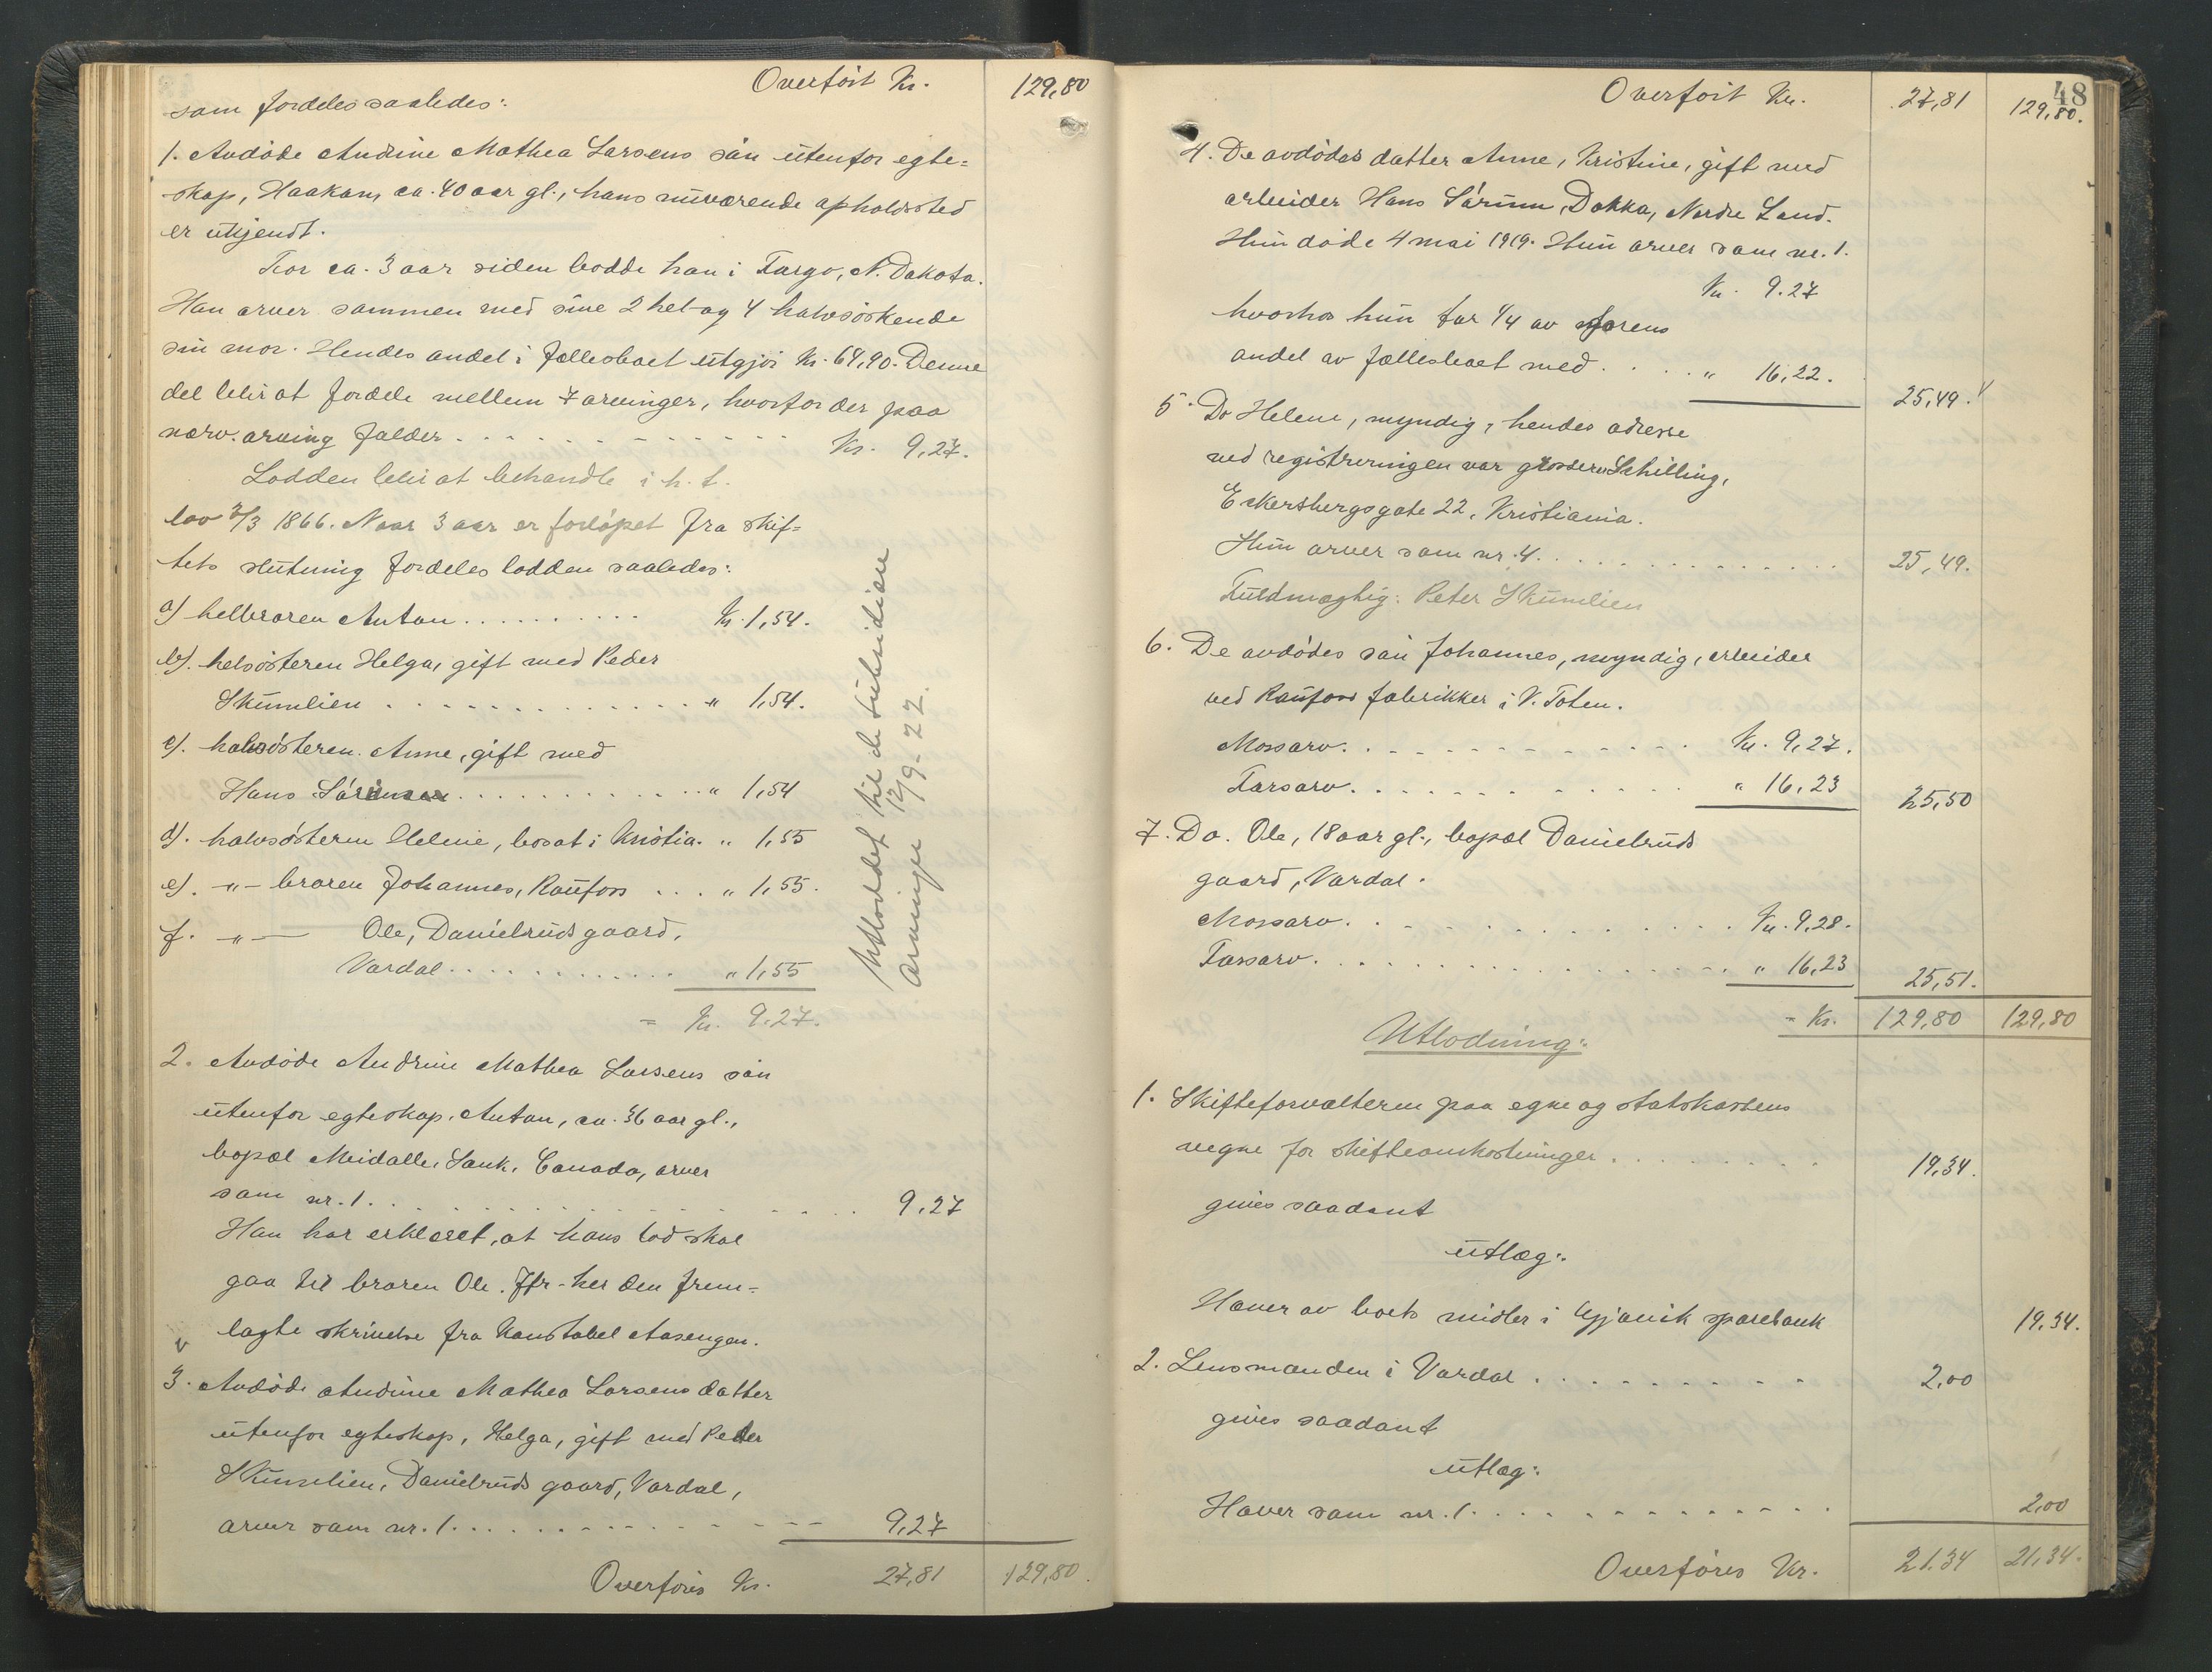 Overført Kr. 129,80
som fordeles saaledes:
1. Avdøde Andrine Mathea Larsens søn utenfor egte-
skap, Haakon, ca. 40 aar gl., hans nuværende opholdssted
er ukjendt.
For ca. 3 aar siden bodde han i Fargo, N. Dakota.
Han arver sammen med sine 2 hel- og 4 halvsøskende
sin mor. Hendes andel i fællesboet utgjør kr. 64,90. Denne
del blir at fordele mellem 7 arvinger, hvorfor der paa
nærv. arving falder . . . Kr. 9,27.
Lodden blir at behandle i h. t.
lov 3/3 1866. Naar 3 aar er forløpet fra skif-
tets slutning fordeles lodden saaledes:
a) helbroren Anton . . . Kr. 1,54.
b). helsøsteren Helga, gift med Peder
Skumlien . . . " 1,54.
c). halvsøsteren Anne, gift med
Hans Sørum . . . " 1,54
d). halvsøsteren Helene, bosat i Kristia. " 1,55
e). -"- broren Johannes, Raufoss . . . " 1,55.
f. -"- Ole, Danielrudsgaard,
Vardal . . . " 1,55
= Kr. 9,27.
Utloddet til de subsidiære
arvinger 12/9-22.
2. Avdøde Andrine Mathea Larsens søn
utenfor egteskap, Anton, ca. 36 aar gl.,
bopæl Meidalle, Sask, Canada, arver
som nr. 1 . . . 9,27
Han har erklæret, at hans lod skal
gaa til broren Ole. Jfr. her den frem-
lagte skrivelse fra konstabel Aasengen.
v
3. Avdøde Andrine Mathea Larsens datter
utenfor egteskap, Helga, gift med Peder
Skumlien, Danielruds gaard, Vardal,
arver som nr. 1 . . . 9,27
Overføres Kr. 27,81 129,80.
48
Overført Kr. 27,81 129,80.
4. De avdødes datter Anne, Kristine, gift med
arbeider Hans Sørum, Dokka, Nordre Land.
Hun døde 4 mai 1919. Hun arver som nr. 1.
Kr. 9.27
hvorhos hun far 1/4 av farens
andel av fællesboet med . . . " 16,22.
25,49.
5. Do Helene, myndig, hendes adresse
ved registreringen var grosserer Schilling,
Eckersbergsgate 22, Kristiania.
Hun arver som nr. 4 . . . 25,49.
Fuldmægtig: Peter Skumlien
6. De avdødes søn Johannes, myndig, arbeider
ved Raufoss fabrikker i V. Toten.
Morsarv . . . Kr. 9,27.
Farsarv . . . " 16,23 25,50
7. Do. Ole, 18 aar gl., bopæl Danielruds
gaard, Vardal.
Morsarv . . . Kr. 9,28.
Farsarv . . . " 16,23 25,51.
= Kr. 129,80 129,80
Utlodning:
1. Skifteforvalteren paa egne og statskassens
vegne for skifteomkostninger . . . 19,34.
gives saadant
utlæg:
Haver av boets midler i Gjøvik sparebank 19,34.
2. Lensmanden i Vardal . . . 2,00
gives saadant
utlæg:
Haver som nr. 1 . . . 2,00
Overføres Kr. 21.34 21,34.